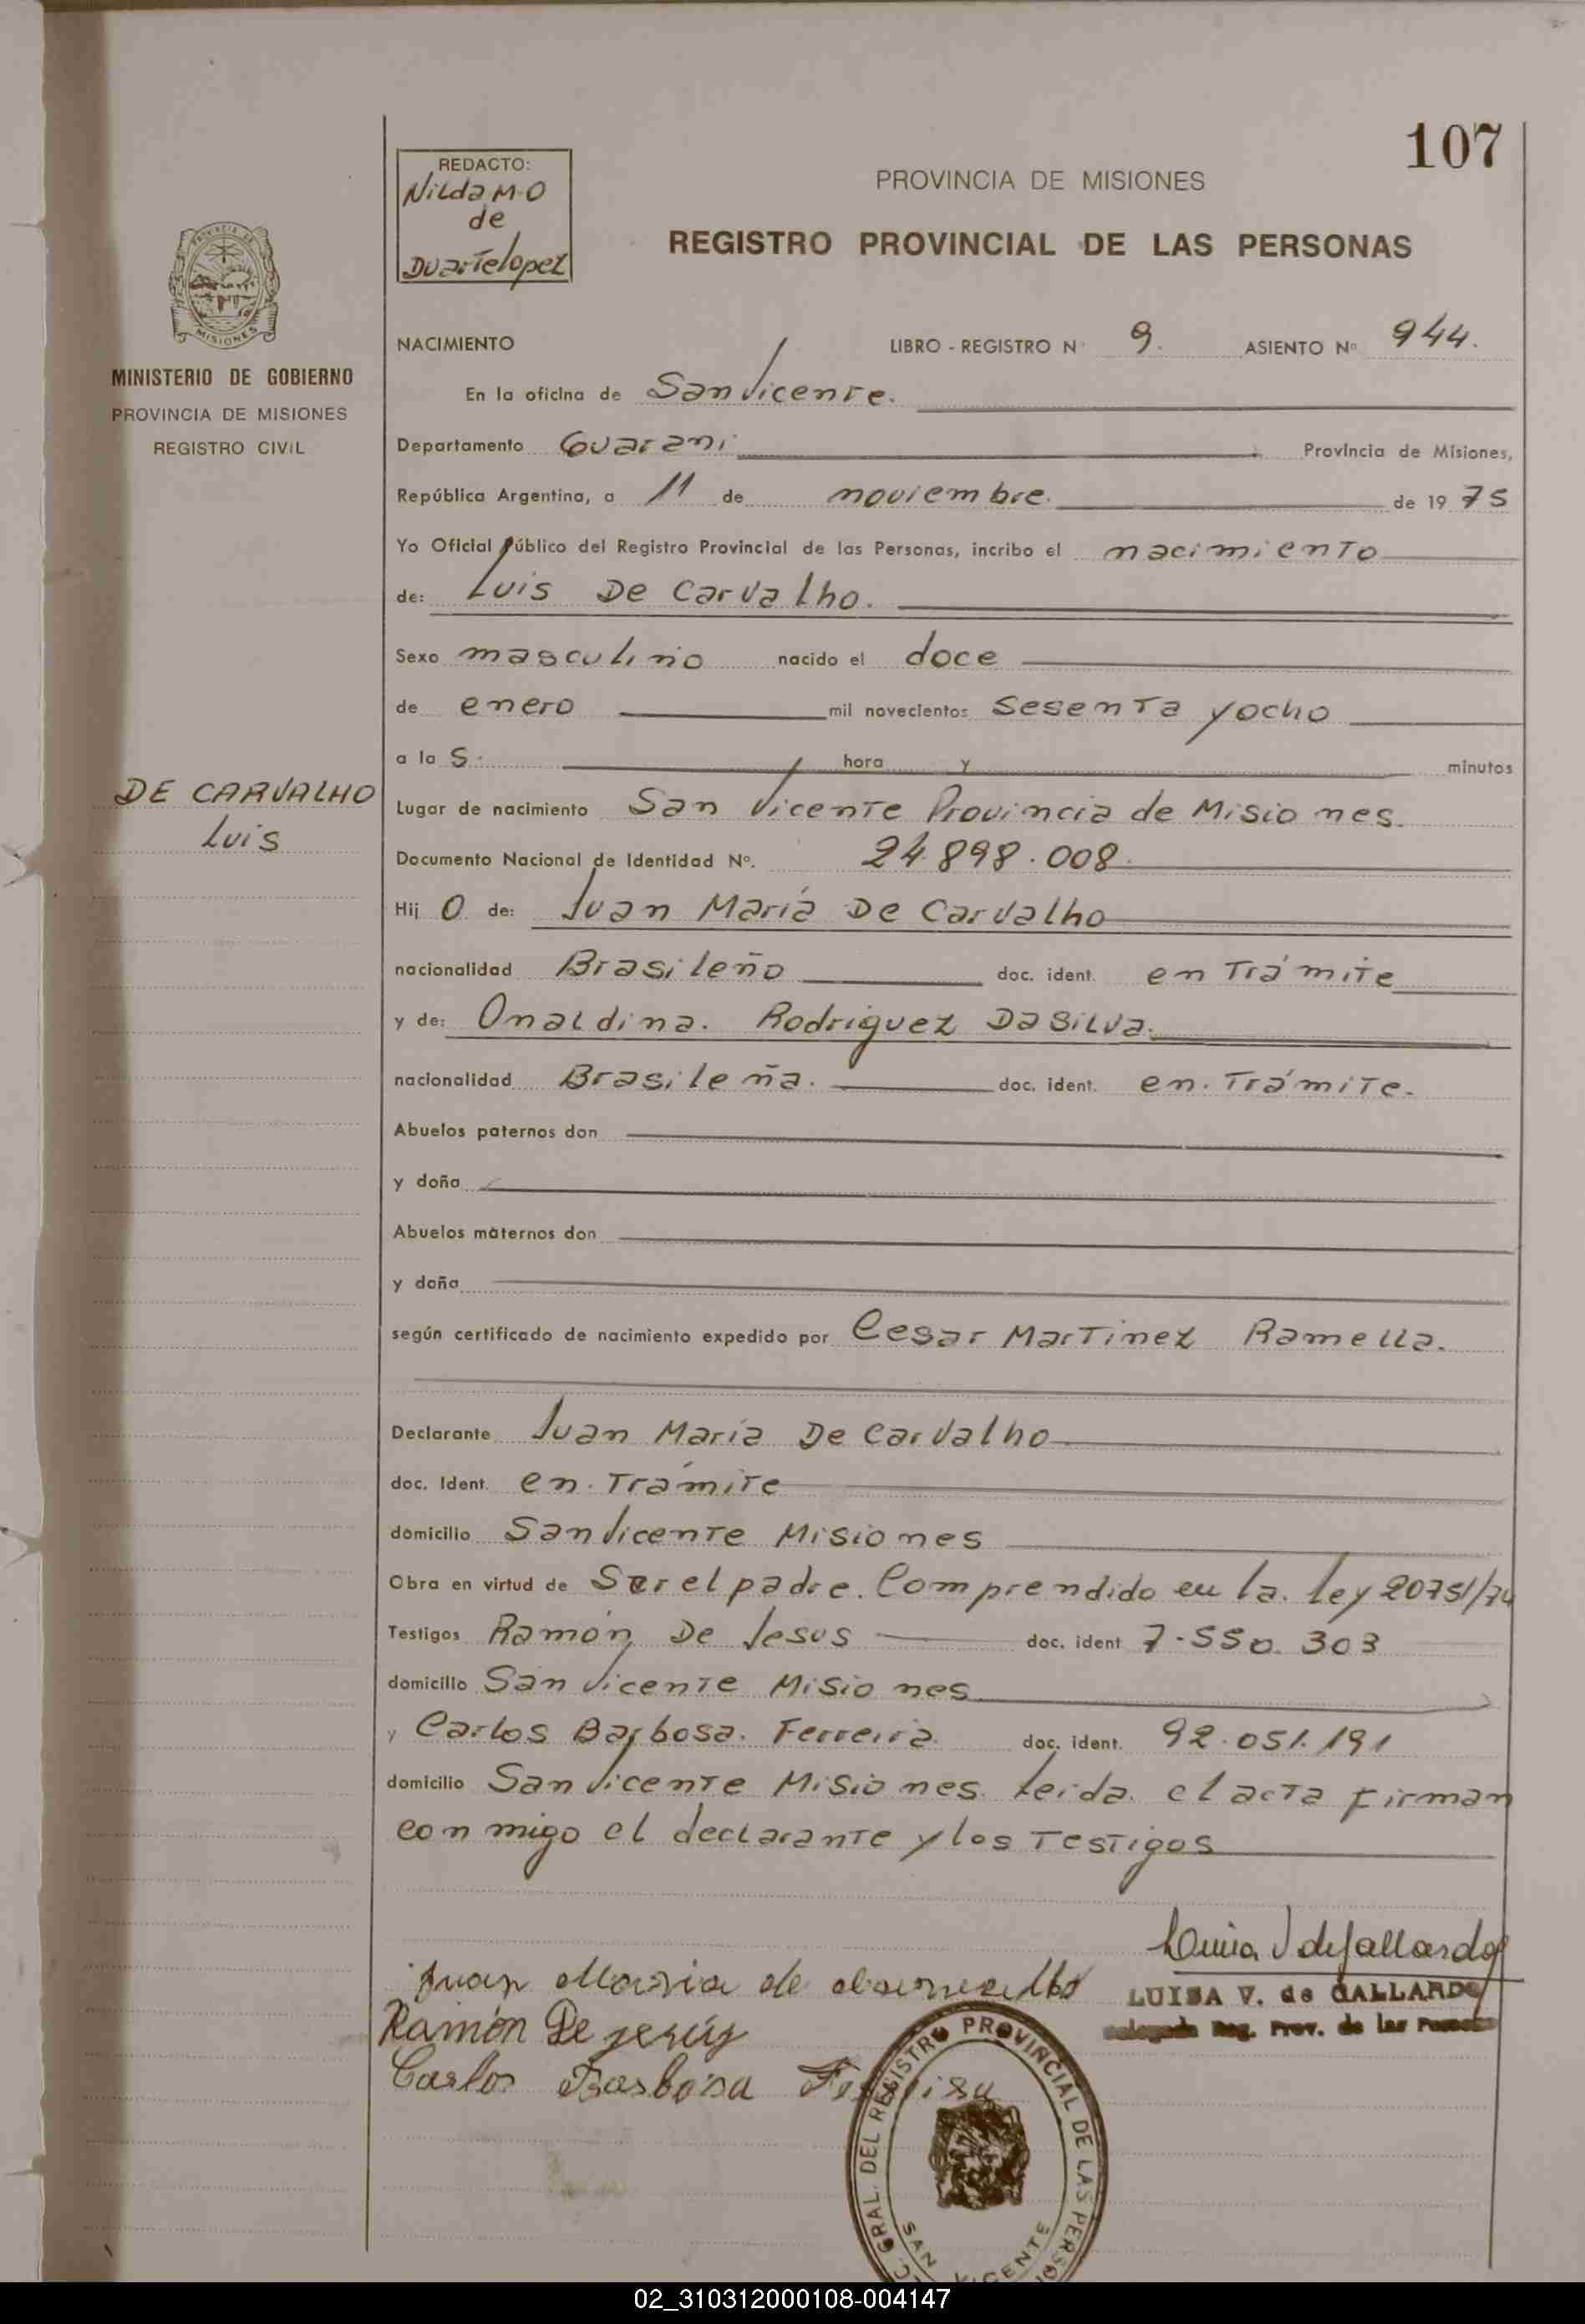 107
REDACTO:
Nilda M.O
de
Duarte lopez
PROVINCIA DE MISIONES
REGISTRO PROVINCIAL DE LAS PERSONAS
PROVINCIA DE
MISIONES
MINISTERIO DE GOBIERNO
PROVINCIA DE MISIONES
REGISTRO CIVIL
NACIMIENTO LIBRO - REGISTRO N° 9. ASIENTO N° 944.
En la oficina de San Vicente.
Departamento Guarani Provincia de Misiones,
República Argentina, a 11 de noviembre. de 1975
Yo Oficial Público del Registro Provincial de las Personas, incribo el nacimiento
de: Luis De Carvalho.
Sexo masculino nacido el doce
de enero mil novecientos Sesenta y ocho
a la S. hora y minutos
DE CARVALHO
Luis
Lugar de nacimiento San Vicente Provincia de Misiones.
Documento Nacional de Identidad N°. 24.898.008.
Hij o de: Juan María De Carvalho
nacionalidad Brasileño doc. ident. en Trámite
y de: Onaldina. Rodriguez Da Silva.
nacionalidad Brasileña. doc. ident. en. Trámite.
Abuelos paternos don
y doña
Abuelos maternos don
y doña
según certificado de nacimiento expedido por Cesar Martinez Ramella.
Declarante Juan María De Carvalho
doc. Ident. en. Trámite
domicilio San Vicente Misiones
Obra en virtud de Ser el padre. Comprendido en la. ley 20751/74
Testigos Ramón De Jesus doc. ident 7.550.303
domicilio San Vicente Misiones
y Carlos Barbosa. Ferreira. doc. ident. 92.051.191
domicilio San Vicente Misiones. Leida. el acta firman
conmigo el declarante y los Testigos
Luisa V de Gallardo
Juan Maria de
LUISA V. de GALLARDO
Delegada Reg. Prov. de las Personas
Ramón De Jesús
Carlos Barbosa Ferreira
GRAL. DEL REGISTRO PROVINCIAL DE LAS PERSO
SAN VICENTE
02_310312000108-004147